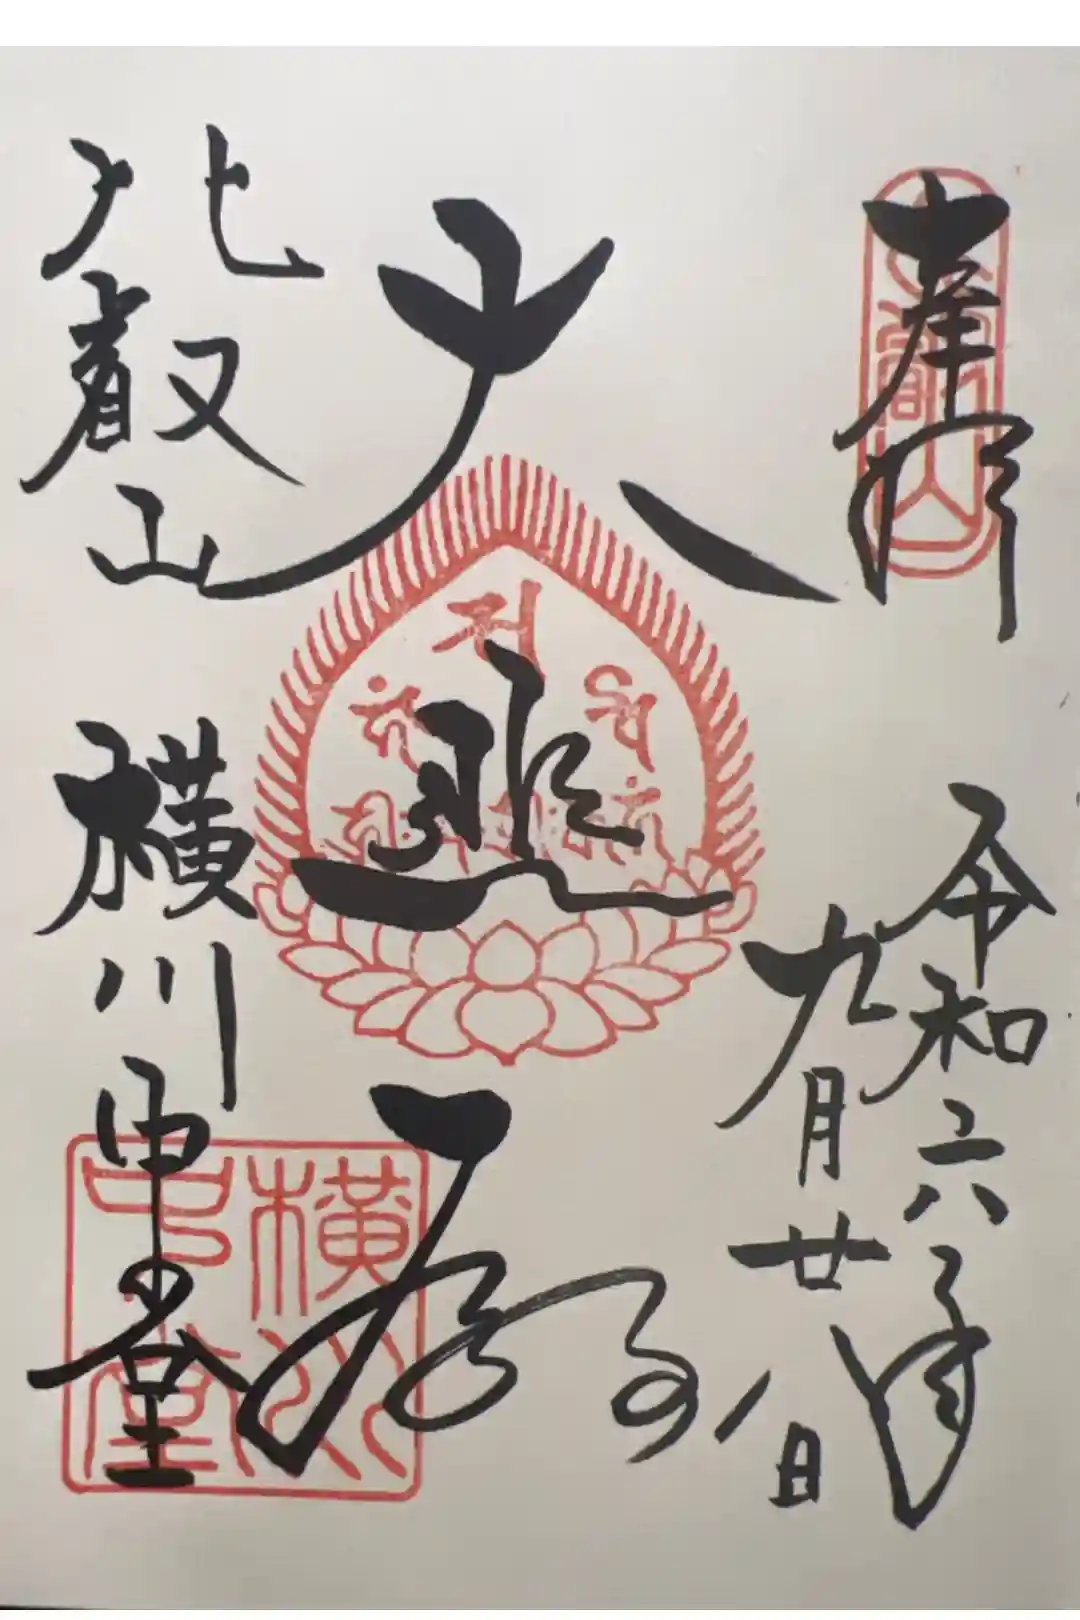 奉拝
令和六年
九月廿八日
大悲殿
比叡山 横川中堂
比叡山
横川中堂